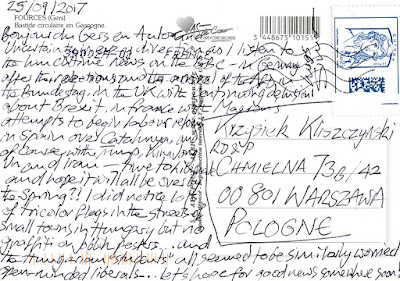 25/09/2017
FOURCÈS (Gers)
Bastide circulaire en Gascogne.
3 448675 10151
Bonjour du Gers en Automne
Uncertainty in every direction as I listen to
the lunchtime news on the BBC - in Germany
after their elections and the arrival of the AfD
to Bundestag. in the UK with continuing
about Brexit, in France with Macron's
attempts to begin labour reform
in Spain over Catalunya, and
of course with Trump, Kim
UN and Iran — time to
and hope it will all be over
the Spring?! I did notice lots
of tricolor flags in the streets of
small towns in Hungary but no
graffiti on posters... and
to all seemed to be similarly worried
open-minded liberals... let's hope for good news somewhere soon!
Krzysiek Kliszczyński
CHMIELNA 73G/42
00 801 WARSZAWA
POLOGNE